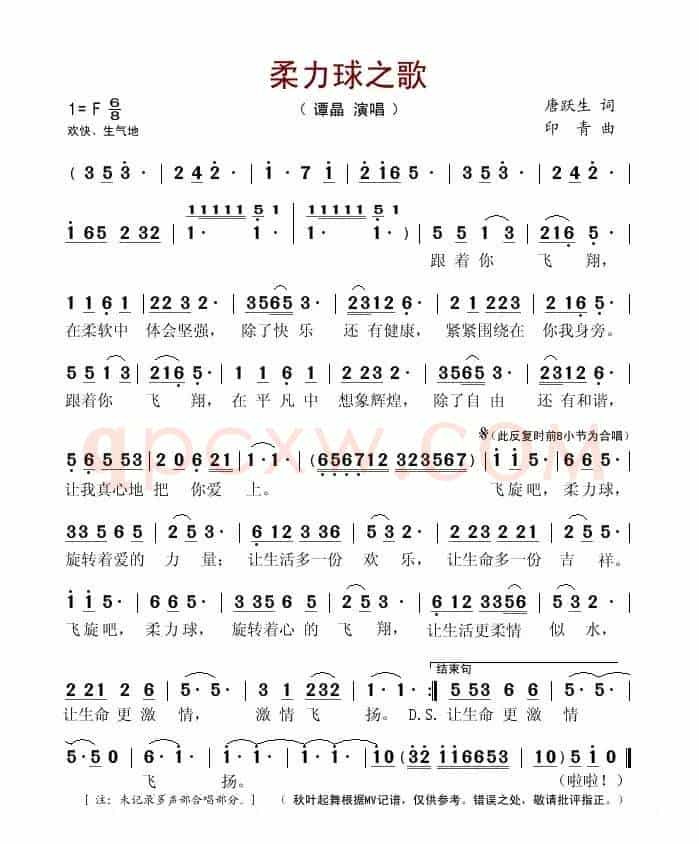 柔力球之歌
1=F 6/8
（ 谭晶 演唱 ）
唐跃生 词
欢快、生气地
印 青 曲
( 3 5 3 · | 2 4 2 · | 1 · 7 1 | 2 2 1 6 5 · | 3 5 3 · | 2 4 2 · |
1 1 1 1 1 5 1 1 1 1 1 1 5 1
1 6 5 2 3 2 | 1 · 1 · | 1 · 1 · ) | 5 5 1 3 | 2 1 6 5 · |
跟着你 飞 翔，
1 1 6 1 | 2 2 3 2 · | 3 5 6 5 3 | 2 3 1 2 6 · | 2 1 2 2 3 | 2 1 6 5 · |
在柔软中 体会坚强， 除了快乐 还有健康， 紧紧围绕在 你我身旁。
5 5 1 3 | 2 1 6 5 · | 1 1 6 1 | 2 2 3 2 · | 3 5 6 5 3 | 2 3 1 2 6 · |
跟着你 飞 翔， 在平凡中 想象辉煌， 除了自由 还有和谐，
𝄋(此反复时前8小节为合唱)
5 6 5 5 3 | 2 0 6 2 1 | 1 · 1 · | (6 5 6 7 1 2 3 2 3 5 6 7) | 1 1 5 · | 3 5 3 · |
让我真心地 把 你爱 上。 飞旋吧， 柔力球，
3 3 5 6 5 | 2 5 3 · | 6 1 2 3 3 6 | 5 6 2 · | 2 2 3 5 2 3 | 2 6 5 · |
旋转着爱的 力 量； 让生活多一份 欢 乐， 让生命多一份 吉 祥。
1 1 5 · | 3 5 3 · | 3 3 5 6 5 | 2 5 3 · | 6 1 2 3 3 5 6 | 5 6 2 · |
飞旋吧， 柔力球， 旋转着心的 飞 翔， 让生活更柔情 似 水，
结束句
2 2 1 2 6 | 5 · 5 · | 3 5 1 2 3 2 | 1 · 1 · :| 5 5 3 6 6 | 5 · 5 · |
让生命更激 情， 激情飞 扬。 D.S. 让生命更激 情
5 · 5 0 | 6 · 1 · | 1 · 1 · | 1 · 1 · | 1 0 (3 2 1 1 6 6 5 3 | 1 0) 5 1 0 ‖
飞 扬。 (啦啦！)
[ 注：未记录多声部合唱部分。]
（ 秋叶起舞根据MV记谱，仅供参考。错误之处、敬请批评指正。）
qpcxw.com